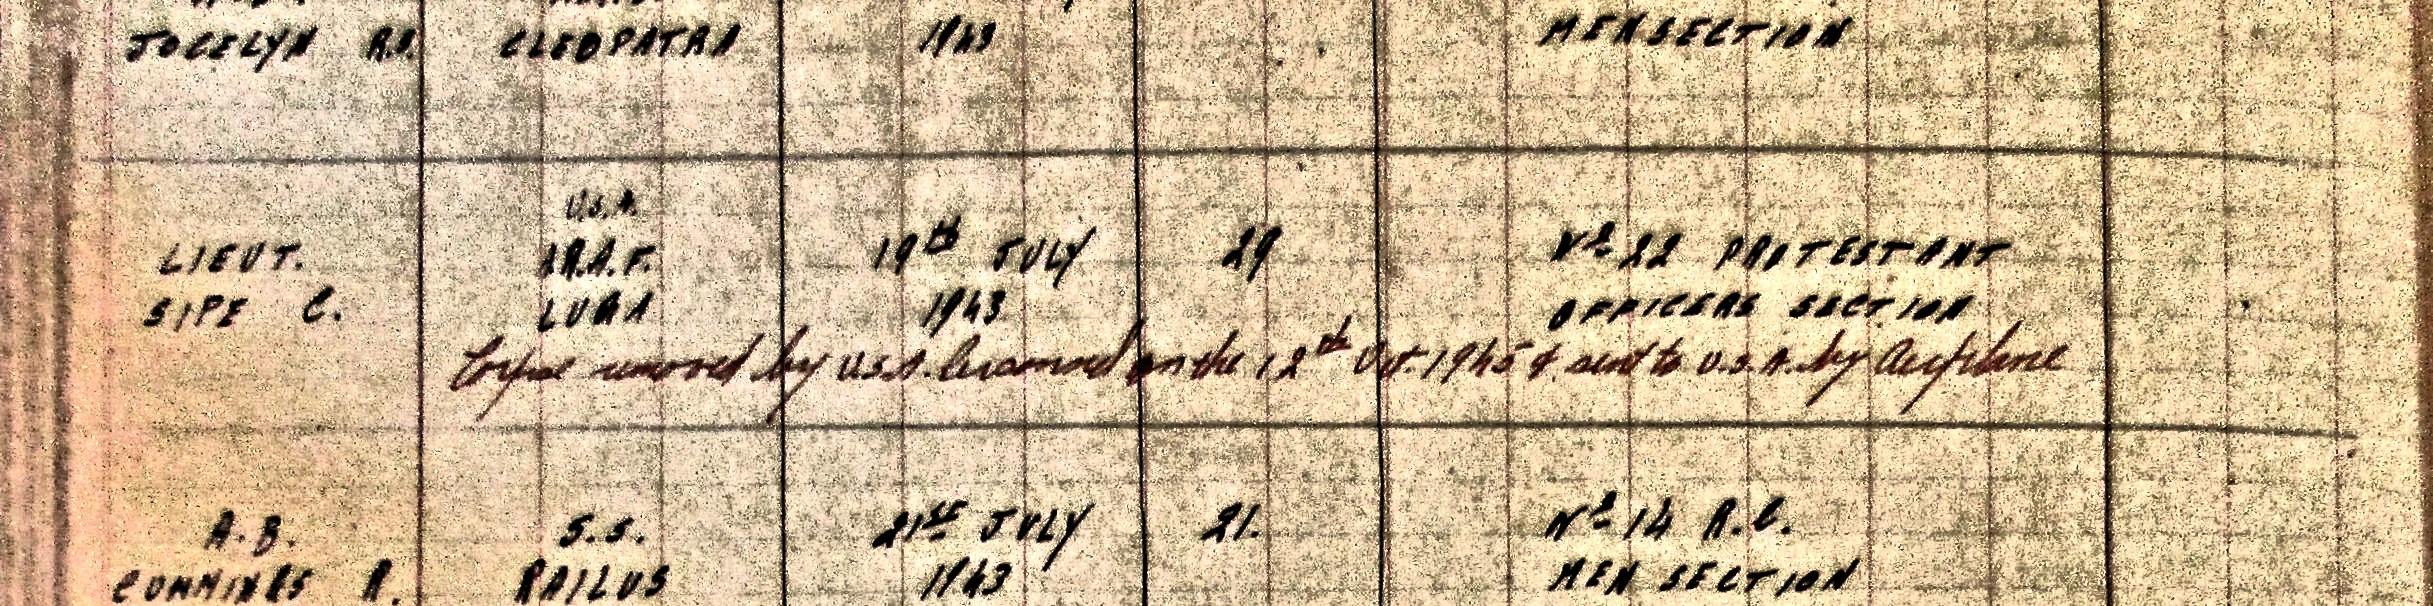 JOCELYN R.S. CLEOPATRA 1943 MEN SECTION
U.S.A.
LIEUT. R.A.F. 19th JULY 29 Nº 22 PROTESTANT
SIPE C. LUQA 1943 OFFICERS SECTION
Corpse removed by U.S.A. on the 12th Oct. 1945 & sent to U.S.A. by Aeroplane
A.B. S.S. 21st JULY 21. Nº 14 R.C.
CUMMINGS R. RAILUS 1943 MEN SECTION